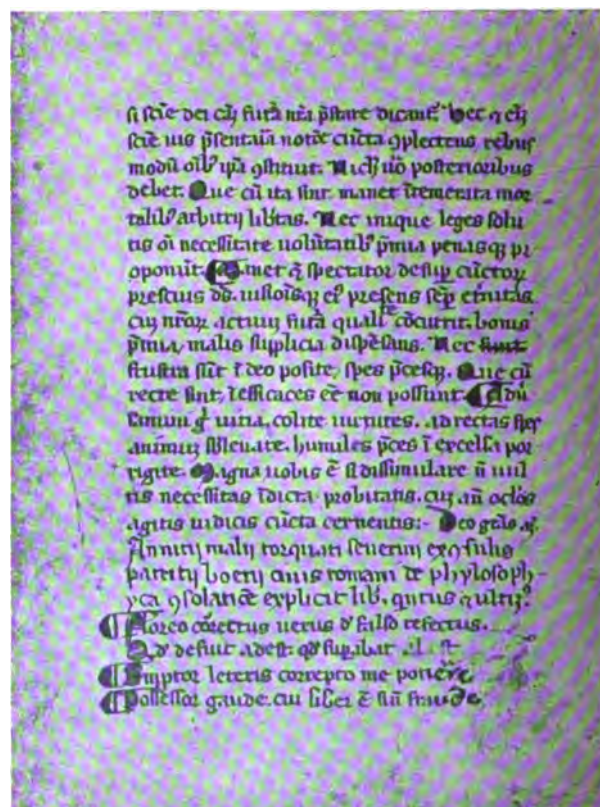 si sciẽ dei cãʒ futã nrã p̃stare dicant᷑. Hec .n. eiꝰ
sciẽ uis p̃sentaĩa notõe cũcta ꝯplectens rebus
modũ oĩbꝰ ip̃a ꝯstituit. Nichil uõ posterioribus
debet. Que cũ ita sint. manet ĩtemerata mor
talibꝰ arbitrij lib̃tas. Nec inique leges solu
tis oĩ necessitate uolũtatibꝰ p̃mia penasqꝫ pr
oponũt. Manet et̃ spectator desup cũctoꝝ
prescius dš. uisiõisqꝫ eiꝰ presens sep̃ etñitas
cuȝ nr̃oꝝ actuuȝ futã qualitate cõcurrit. bonis
p̃mia, malis suplicia dispẽsans. Nec
frustra sũt ĩ deo posite, spes p̃cesqꝫ. Que cũ
recte sint, ĩefficaces eẽ non possunt. Adũ
samini gͥ uitia, colite uirtutes. Ad rectas spes
animuȝ sb̃leuate. humiles p̃ces ĩ excelsa por
rigite. Magna uobis ẽ si dissimulare ñ uul
tis necessitas ĩdicta probitatis. cuȝ añ oclõs
agitis iudicis cũcta cernentis:- Deo grãs
Annitij malij torquati seuerini exꝯsulis
patritij boetij ciuis romani de phylosoph-
yca ꝯsolatiõe explicit lib. quītus ⁊ ultiꝰ.
Floreo cõrectus uerus ď falso refectus.
Qď defuit adest. qď supabat
Emptor leteris correpto me potiere
Possessor gaude. cui liber ẽ sine fraude